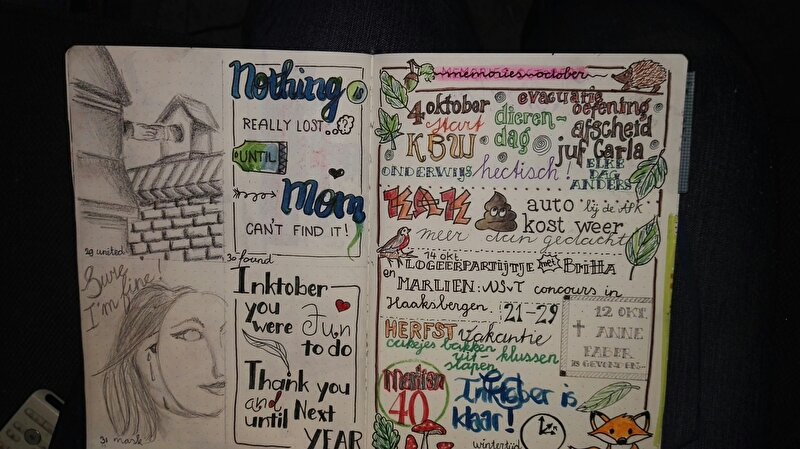 29 united
Nothing is
REALLY LOST...
UNTIL
Mom
CAN'T FIND IT!
30 found
I'm fine!
31 mask
Inktober
you
were Fun
to do
Thank you
and
until Next
YEAR
memories october
4 oktober
start
KBW
ONDERWIJS
dieren-
dag
hectisch!
evacuatie
oefening
afscheid
juf Carla
ELKE
DAG
ANDERS
KAK
auto bij de APK
kost weer
meer dan gedacht
14 okt.
LOGEERPARTIJTJE met Britta
en MARLIEN: WSVT concours in
Haaksbergen.
21-29
HERFST vakantie
cakejes bakken
uit- klussen
slapen
12 OKT.
ANNE
FABER
IS GEVONDEN...
40
Inktober is
klaar!
wintertijd